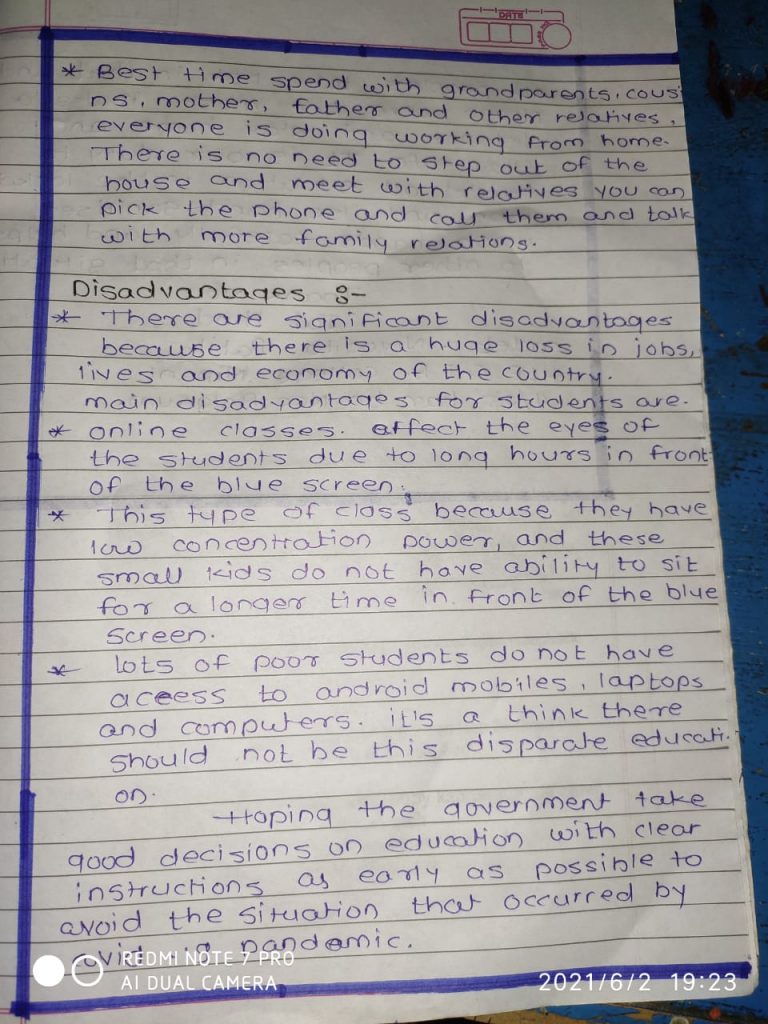 DATE
* Best time spend with grandparents, cousi
ns, mother, father and other relatives,
everyone is doing working from home.
There is no need to step out of the
house and meet with relatives you can
pick the phone and call them and talk
with more family relations.
Disadvantages :-
* There are significant disadvantages
because there is a huge loss in jobs,
lives and economy of the country.
main disadvantages for students are.
* online classes. affect the eyes of
the students due to long hours in front
of the blue screen.
* This type of class because they have
low concentration power, and these
small kids do not have ability to sit
for a longer time in front of the blue
screen.
* lots of poor students do not have
access to android mobiles, laptops
and computers. it's a think there
should not be this disparate educati.
on.
Hoping the government take
good decisions on education with clear
instructions as early as possible to
avoid the situation that occurred by
pandemic.
REDMI NOTE 7 PRO
AI DUAL CAMERA
2021/6/2 19:23